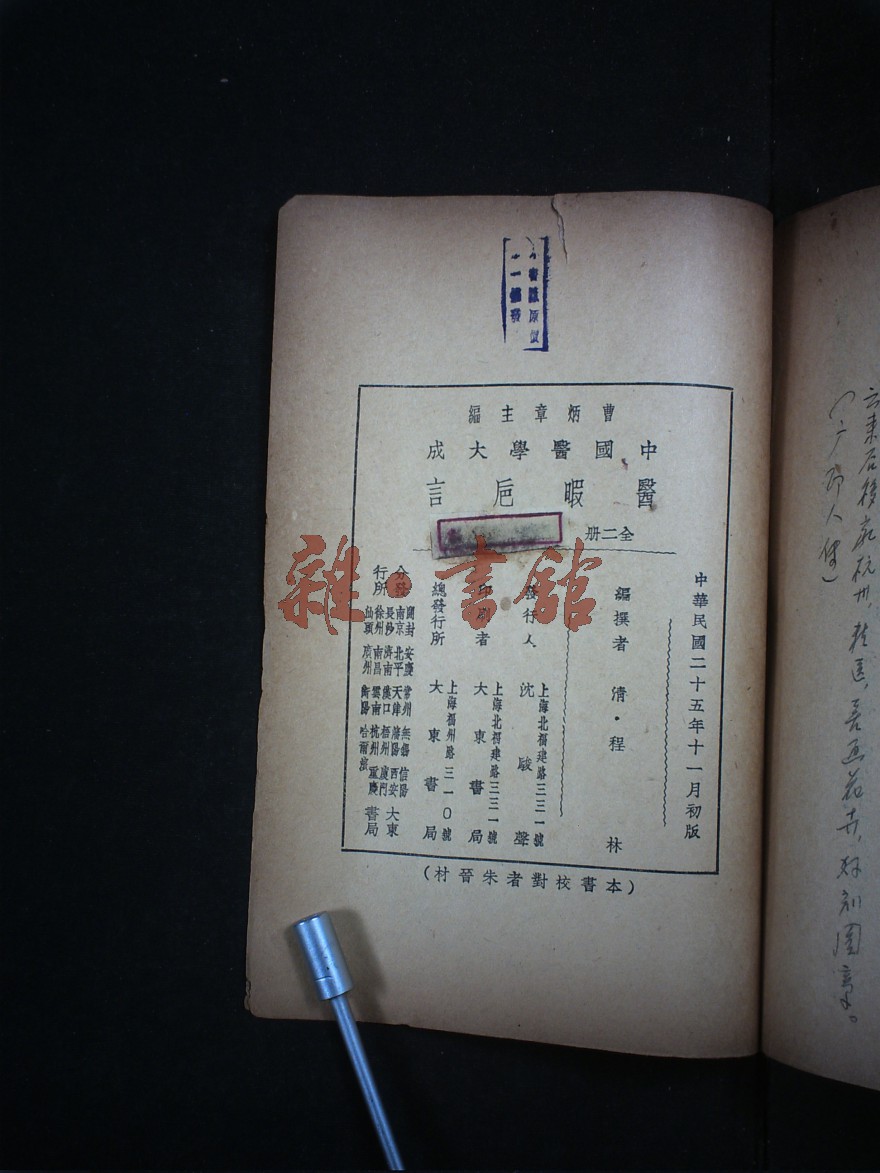 曹炳章主編
中國醫學大成
醫暇巵言
全二册
中華民國二十五年十一月初版
編撰者 清·程林
發行人 上海北福建路三三一號 沈駿聲
印刷者 上海北福建路三三一號 大東書局
總發行所 上海福州路三一〇號 大東書局
分發行所
開封 安慶 常州 無錫 信陽
南京 北平 天津 瀋陽 西安
長沙 濟南 漢口 梧州 廈門
徐州 南昌 雲南 杭州 重慶
汕頭 廣州 衡陽 哈爾濱
大東書局
(本書校對者朱晉村)
雜·書館